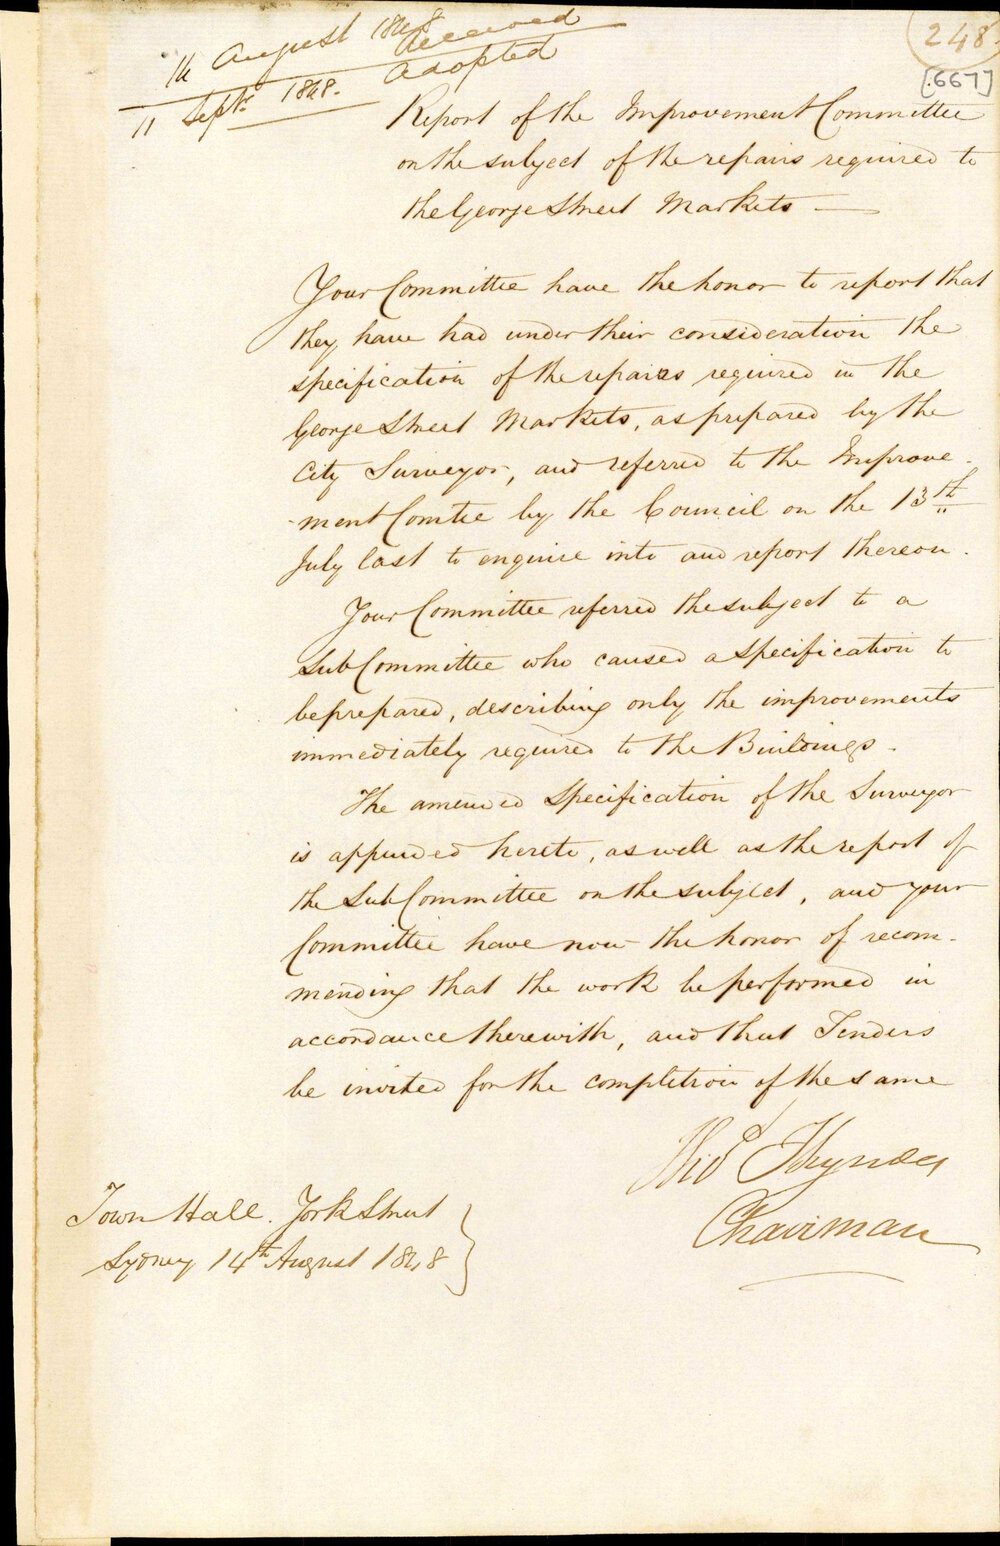 14 August 1848 Received
11 Septr. 1848. adopted
248
[667]
Report of the Improvement Committee
on the subject of the repairs required to
the George Street Markets —
Your Committee have the honor to report that
they have had under their consideration the
specification of the repairs required in the
George Street Markets, as prepared by the
City Surveyor, and referred to the Improve-
-ment Comtee by the Council on the 13th
July last to enquire into and report thereon.
Your Committee referred the subject to a
Sub Committee who caused a specification to
be prepared, describing only the improvements
immediately required to the Buildings.
The amended Specification of the Surveyor
is appended hereto, as well as the report of
the Sub Committee on the subject, and your
Committee have now the honor of recom-
mending that the work be performed in
accordance therewith, and that Tenders
be invited for the completion of the same
Chairman
Town Hall. York Street
Sydney 14th August 1848